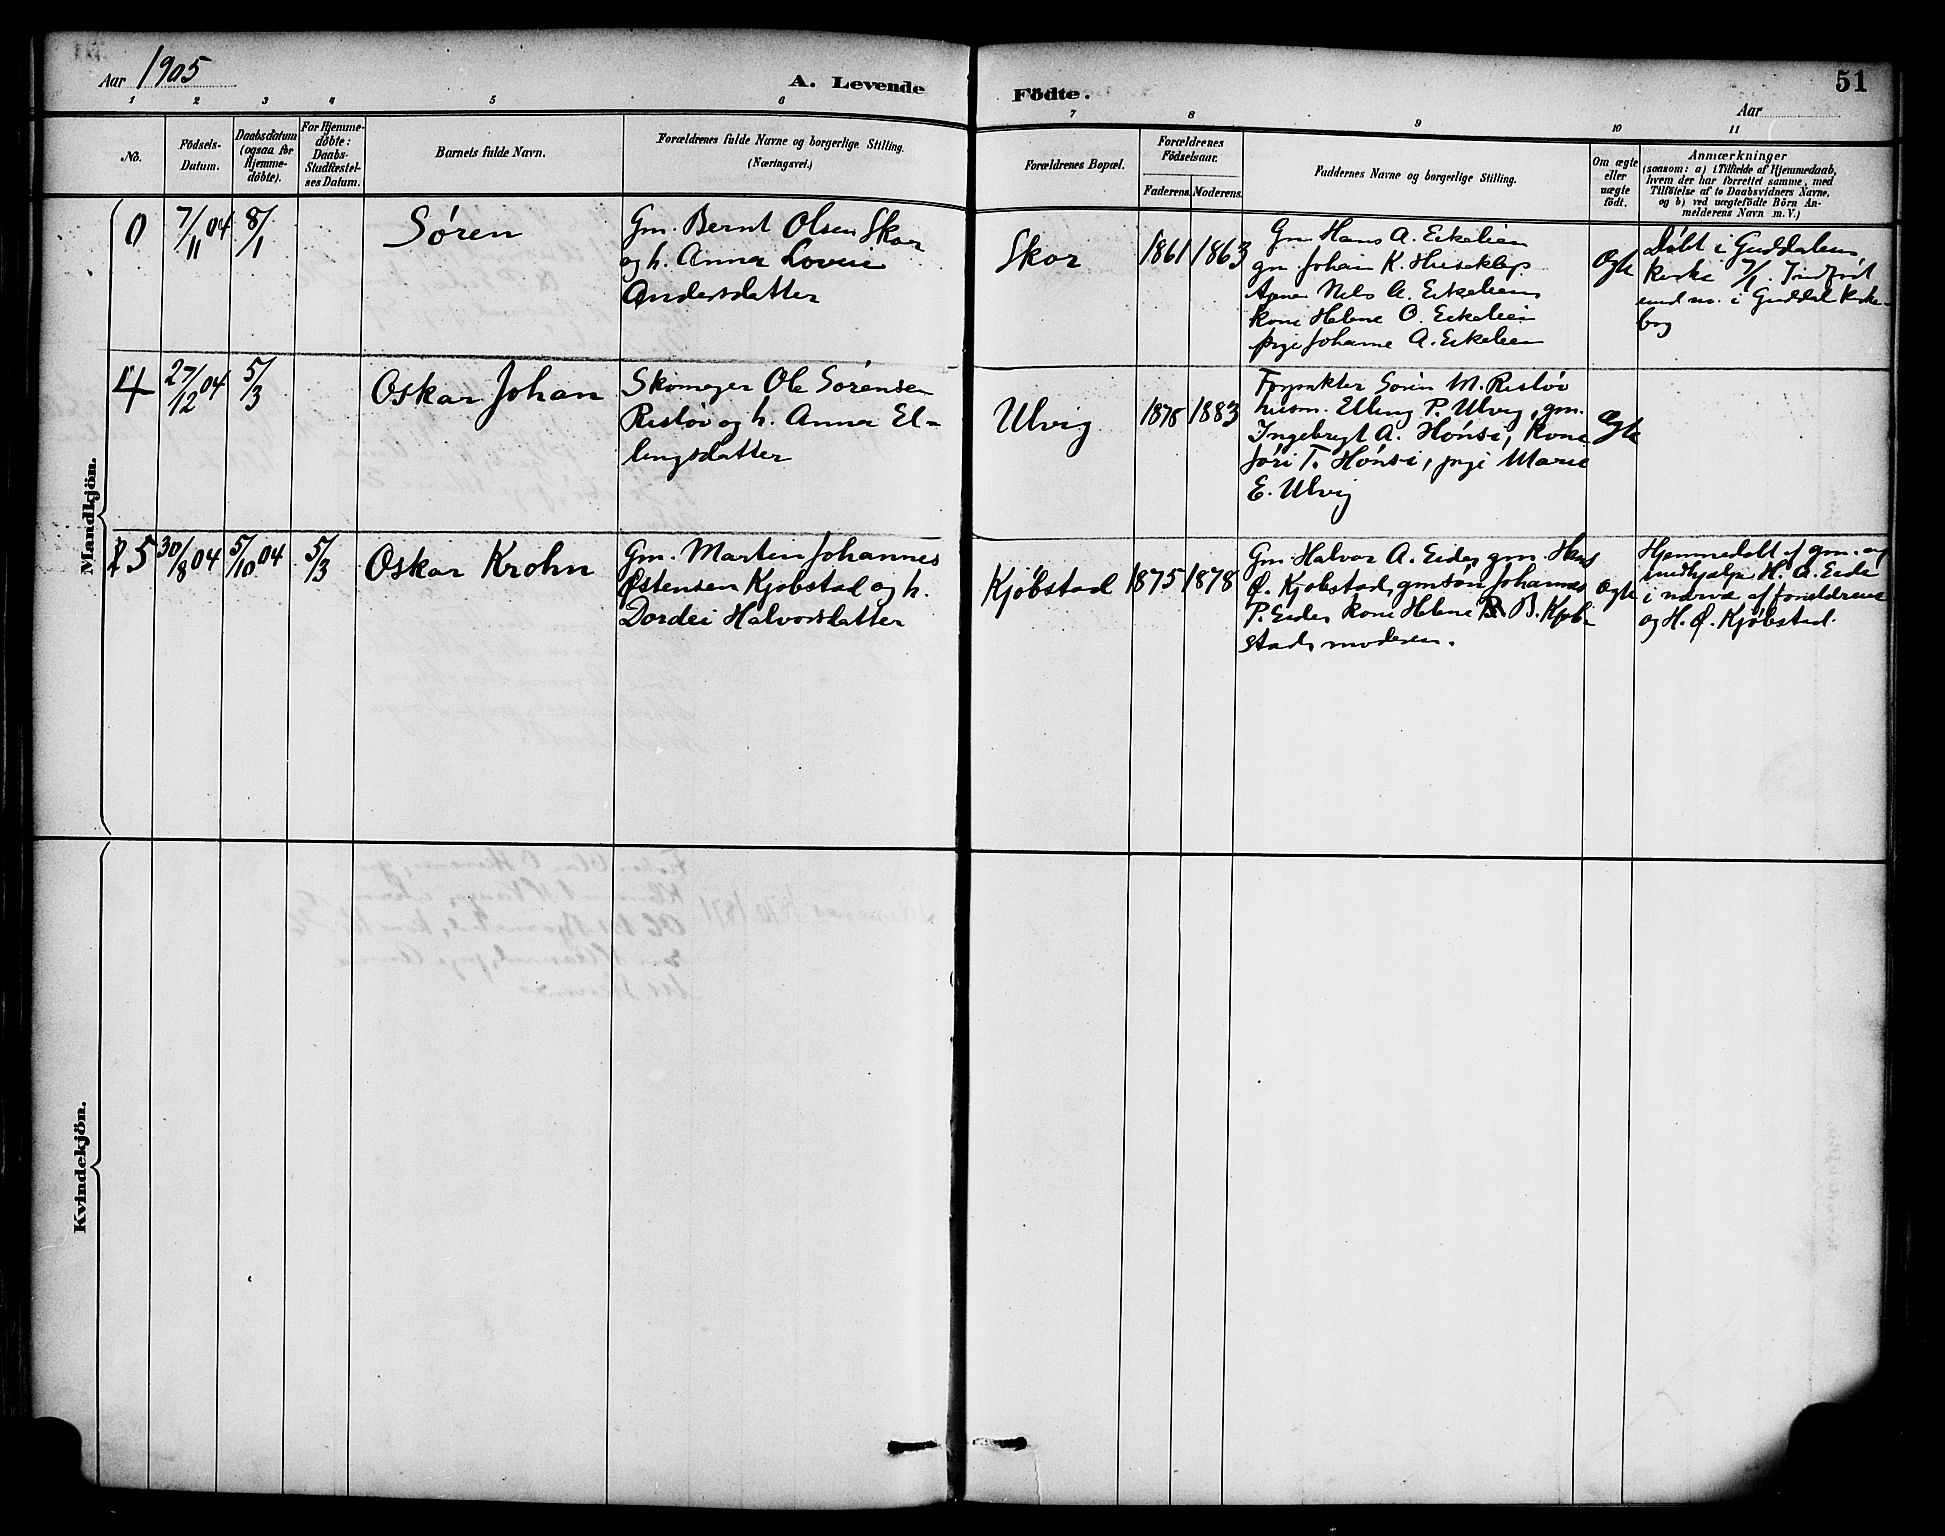 Aar 1905
A. Levende
Födte.
51
Aar
1 2 3 4 5 6 7 8 9 10 11
No.
Födsels-
Datum.
Daabsdatum
(ogsaa for
Hjemme-
döbte).
For Hjemme-
döbte:
Daabs-
Stadfæstel-
ses Datum.
Barnets fulde Navn.
Forældrenes fulde Navne og borgerlige Stilling.
(Næringsvei.)
Forældrenes Bopæl.
Forældrenes
Födselsaar.
Faderens. Moderens.
Faddernes Navne og borgerlige Stilling.
Om ægte
eller
uægte
födt.
Anmærkninger
(saasom: a) i Tilfælde af Hjemmedaab,
hvem der har forrettet samme, med
Tilföielse af to Daabsvidners Navne,
og b) ved uægtefödte Börn An-
melderens Navn m. V.)
Mandkjön.
0
7/11 04
8/1
Søren
Gm. Bernt Olsen Skor
og h. Anna Lovise
Andersdatter
Skor
1861 1863
Gm Hans A. Eikelien
gm. Johan K. Huseklep
Nils A. Eikelien
kone Helene O. Eikelien
pige Johanne A. Eikelien
Ægte
Døbt i Guddalens
kirke 7/1. Indført
i Guddal kirke-
bog
4
27/12 04
5/3
Oskar Johan
Skomager Ole Sørensen
Risløv og h. Anna El-
lingsdatter
Ulvig
1878 1883
Forpakter Sørin M. Risløv
husm. Elling P. Ulvig, gm.
Ingebrygt A. Hønsi, Kone
Jóri T. Hønsi, pige Marie
E. Ulvig
Ægte
5
30/8 04
5/10 04
5/3
Oskar Krohn
Gm. Martin Johannes
Østensen Kjøbstad og h.
Dordei Halvorsdatter
Kjøbstad
1875 1878
Gm Halvor A. Eide, gm. Hans
Ø. Kjøbstad, gmsøn Johannes
P. Eide, kone Helene B. Kjøb-
stad, moderen.
Ægte
Hjemmedøbt af gm. og
medhjælp. H. A. Eide
i nærvæ af forældrene
og H. Ø. Kjøbstad.
Kvindekjön.